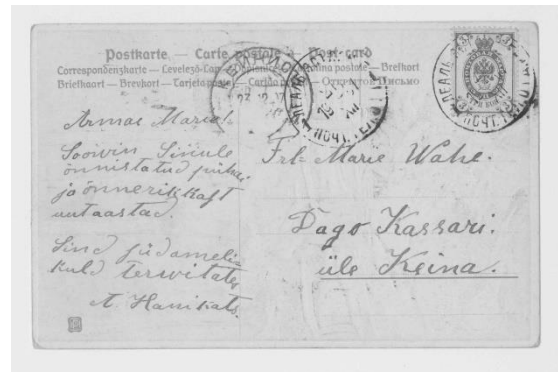 Postkarte — Carte postale — Post-card
Correspondenzkarte — Levelező-Lap — postale — Brefkort
Briefkaart — Brevkort — Tarjeta postal — Открытое Письмо
23 12
ПОЧТ.
ПОЧТ. ТЕЛ.
Armas Marie!
Soovin Sinule
õnnistatud pühi
ja õnnerikkast
uut aastad.
Sind südameli-
kuld tervitates
A. Hanikats.
Frl. Marie Wahe.
Dago Kassari.
üle Keina.